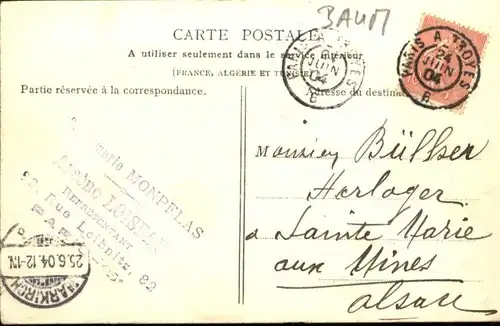 BAUM
CARTE POSTALE
A utiliser seulement dans le service intérieur
(FRANCE, ALGÉRIE ET TUNISIE)
Partie réservée à la correspondance.
Adresse du destinataire
PARIS A TROYES
JUIN
04
B
PARIS A TROYES
24
JUIN
04
B
Parfumerie MONPELAS
Arsène LOISEAU
REPRÉSENTANT
82, Rue Leibnitz, 82
PARIS
MARKIRCH
25.6.04.12-1N.
Monsieur Büllser
Horloger
a Sainte Marie
aux Mines
Alsace